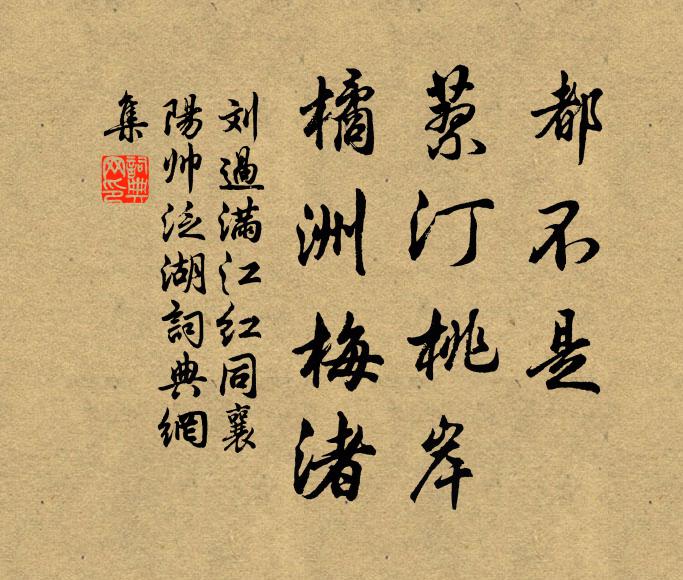 都不是
蓼汀桃岸
橘洲梅渚
刘過满江红同襄
陽帅泛湖詞典網
集
詞典网印